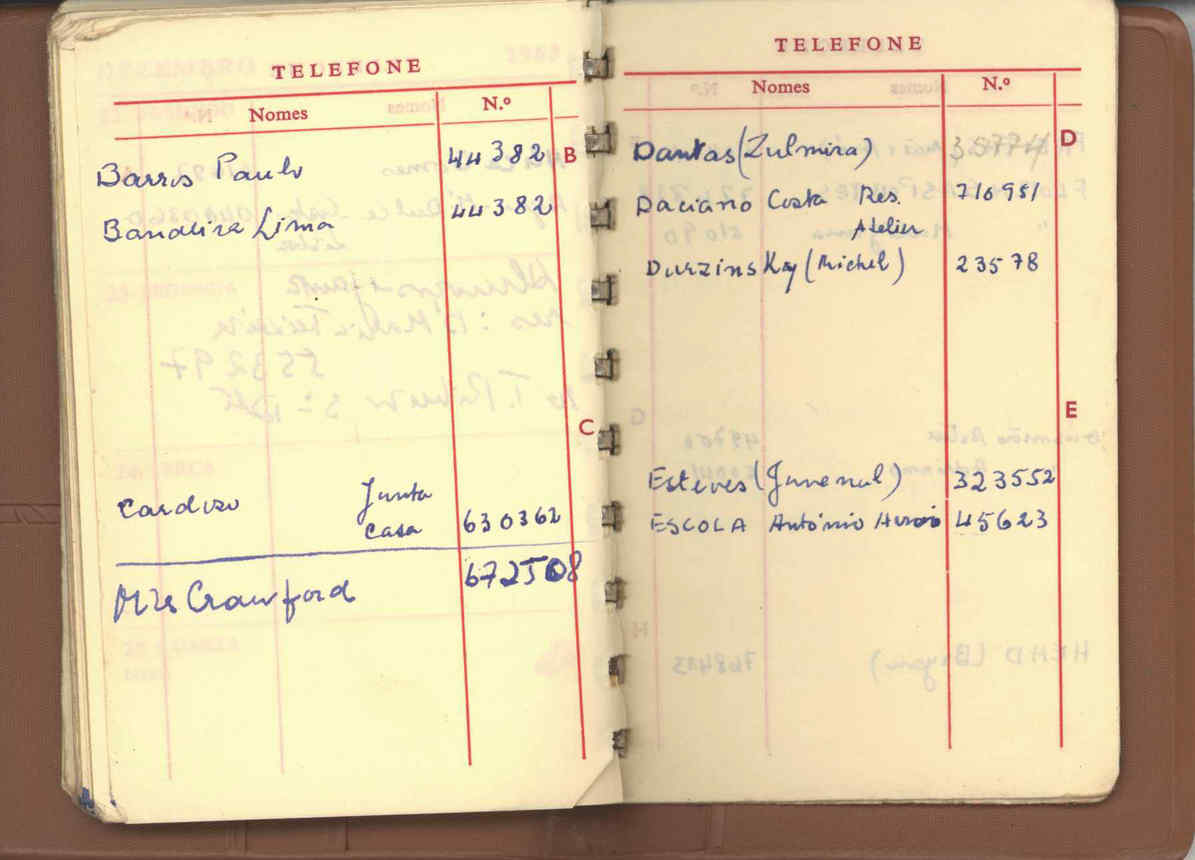 TELEFONE
Nomes N.º
Barros Paulo 44382 B
Bandeira Lima 44382
C
Cardoso Junta
Casa 630362
Mrs Crawford 672508
TELEFONE
Nomes N.º
Dantas (Zulmira) D
Daciano Costa Res. 710951
Atelier
Durzinskay (Michel) 23578
E
Esteves (Juvenal) 323552
ESCOLA António 45623